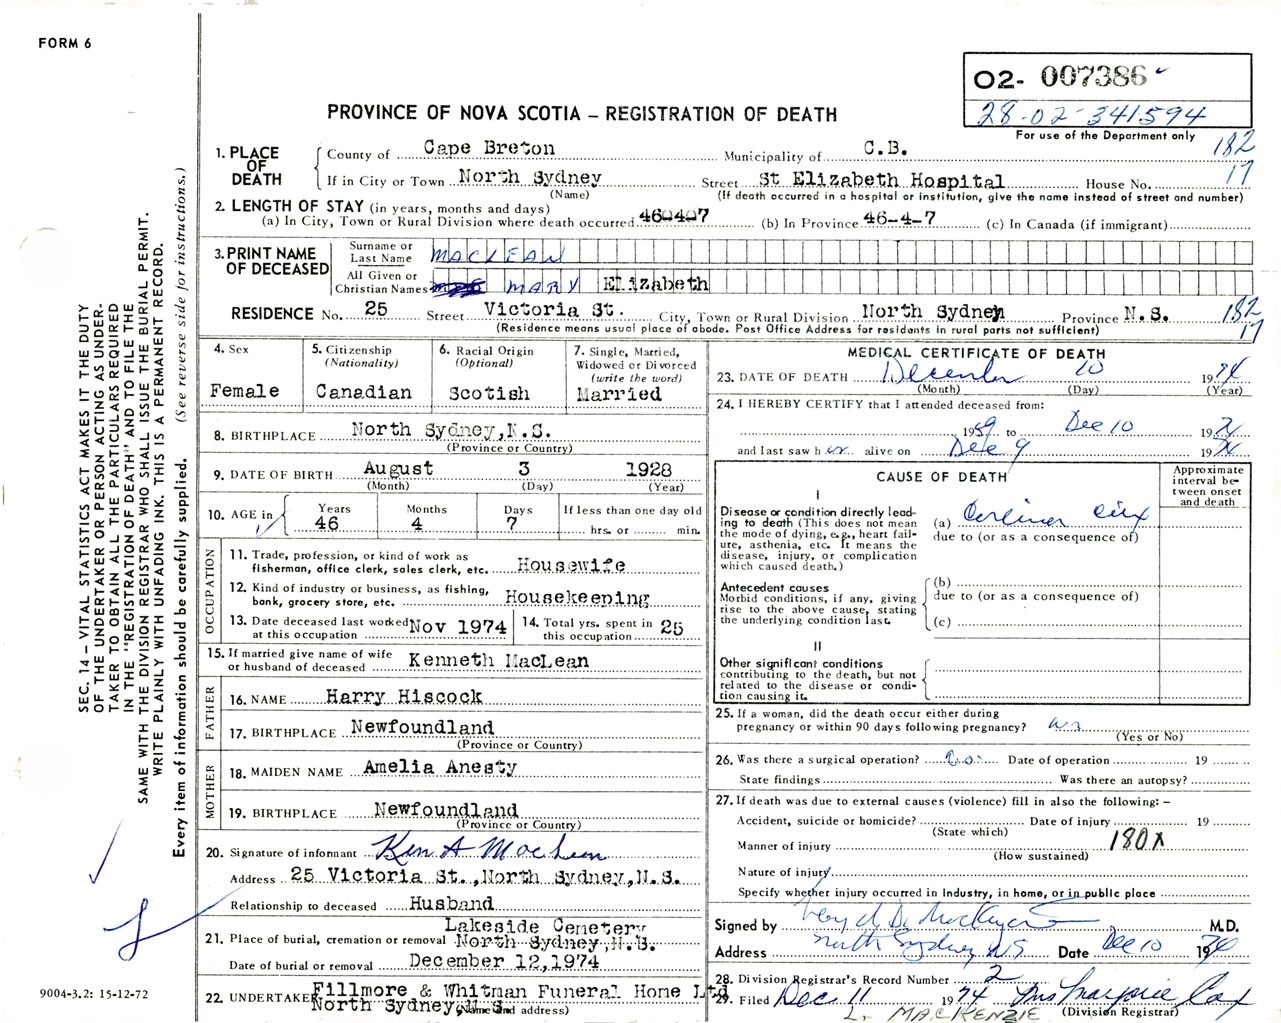 FORM 6
O2- 007386
28-02-341594
For use of the Department only
PROVINCE OF NOVA SCOTIA – REGISTRATION OF DEATH
182
17
1. PLACE OF DEATH
County of Cape Breton Municipality of C.B.
If in City or Town North Sydney Street St Elizabeth Hospital House No.
(Name) (If death occurred in a hospital or institution, give the name instead of street and number)
2. LENGTH OF STAY (in years, months and days)
(a) In City, Town or Rural Division where death occurred 46-4-7 (b) In Province 46-4-7 (c) In Canada (if immigrant)
3. PRINT NAME OF DECEASED
Surname or Last Name MACLEAN
All Given or Christian Names MARY Elizabeth
RESIDENCE No. 25 Street Victoria St. City, Town or Rural Division North Sydney Province N.S. 182
17
(Residence means usual place of abode. Post Office Address for residents in rural parts not sufficient)
4. Sex
Female
5. Citizenship
(Nationality)
Canadian
6. Racial Origin
(Optional)
Scotish
7. Single, Married,
Widowed or Divorced
(write the word)
Married
8. BIRTHPLACE North Sydney,N.S.
(Province or Country)
9. DATE OF BIRTH August 3 1928
(Month) (Day) (Year)
10. AGE in
Years Months Days If less than one day old
46 4 7 hrs. or min.
OCCUPATION
11. Trade, profession, or kind of work as
fisherman, office clerk, sales clerk, etc. Housewife
12. Kind of industry or business, as fishing,
bank, grocery store, etc. Housekeeping
13. Date deceased last worked
at this occupation Nov 1974
14. Total yrs. spent in
this occupation 25
15. If married give name of wife
or husband of deceased Kenneth MacLean
FATHER
16. NAME Harry Hiscock
17. BIRTHPLACE Newfoundland
(Province or Country)
MOTHER
18. MAIDEN NAME Amelia Anesty
19. BIRTHPLACE Newfoundland
(Province or Country)
20. Signature of informant Ken A MacLean
Address 25 Victoria St.,North Sydney,N.S.
Relationship to deceased Husband
Lakeside Cemetery
21. Place of burial, cremation or removal North Sydney,N.S.
Date of burial or removal December 12,1974
22. UNDERTAKER Fillmore & Whitman Funeral Home Ltd
North Sydney,N.S.
(Name and address)
MEDICAL CERTIFICATE OF DEATH
23. DATE OF DEATH December 10 1974
(Month) (Day) (Year)
24. I HEREBY CERTIFY that I attended deceased from:
1959 to Dec 10 1974
and last saw her alive on Dec 9 1974
CAUSE OF DEATH
Approximate interval between onset and death
I
Disease or condition directly lead-
ing to death (This does not mean
the mode of dying, e.g., heart fail-
ure, asthenia, etc. It means the
disease, injury, or complication
which caused death.)
(a)
due to (or as a consequence of)
Antecedent causes
Morbid conditions, if any, giving
rise to the above cause, stating
the underlying condition last.
(b)
due to (or as a consequence of)
(c)
II
Other significant conditions
contributing to the death, but not
related to the disease or condi-
tion causing it.
25. If a woman, did the death occur either during
pregnancy or within 90 days following pregnancy? no
(Yes or No)
26. Was there a surgical operation? no Date of operation 19
State findings Was there an autopsy?
27. If death was due to external causes (violence) fill in also the following: –
Accident, suicide or homicide? Date of injury 19
(State which)
180X
Manner of injury
(How sustained)
Nature of injury
Specify whether injury occurred in industry, in home, or in public place
Signed by M.D.
Address North Sydney N.S. Date Dec 10 1974
28. Division Registrar's Record Number 2
29. Filed Dec 11 1974 Mrs Marjorie Cox
(Division Registrar)
L. MACKENZIE
SEC. 14 – VITAL STATISTICS ACT MAKES IT THE DUTY
OF THE UNDERTAKER OR PERSON ACTING AS UNDER-
TAKER TO OBTAIN ALL THE PARTICULARS REQUIRED
IN THE "REGISTRATION OF DEATH" AND TO FILE THE
SAME WITH THE DIVISION REGISTRAR WHO SHALL ISSUE THE BURIAL PERMIT.
WRITE PLAINLY WITH UNFADING INK. THIS IS A PERMANENT RECORD.
Every item of information should be carefully supplied. (See reverse side for instructions.)
9004-3.2: 15-12-72